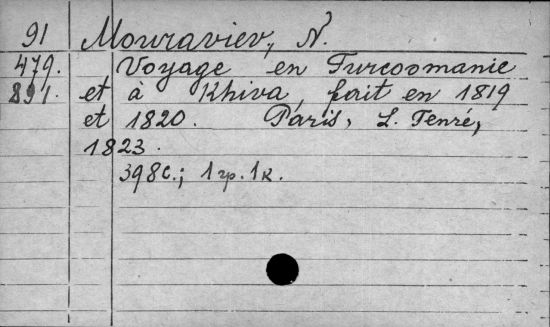 91 Mouraviev, N.
479. Voyage en Turcoomanie
891. et à Khiva, fait en 1819
et 1820. Paris, L. Tenré,
1823.
398 с.; 1 гр. 1 к.